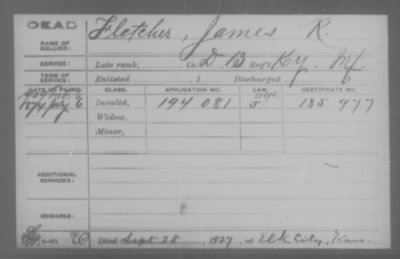 DEAD
NAME OF SOLDIER: Fletcher, James R.
SERVICE: Late rank, Co. D, Reg't Ky.
TERM OF SERVICE: Enlisted , 1 Discharged , 1
DATE OF FILING. CLASS. APPLICATION NO. LAW. CERTIFICATE NO.
1874 July 6 Invalid, 194 081 185 477
Widow,
Minor,
ADDITIONAL SERVICES:
REMARKS:
Died Sept 28, 1927, at Elk City, Kans.